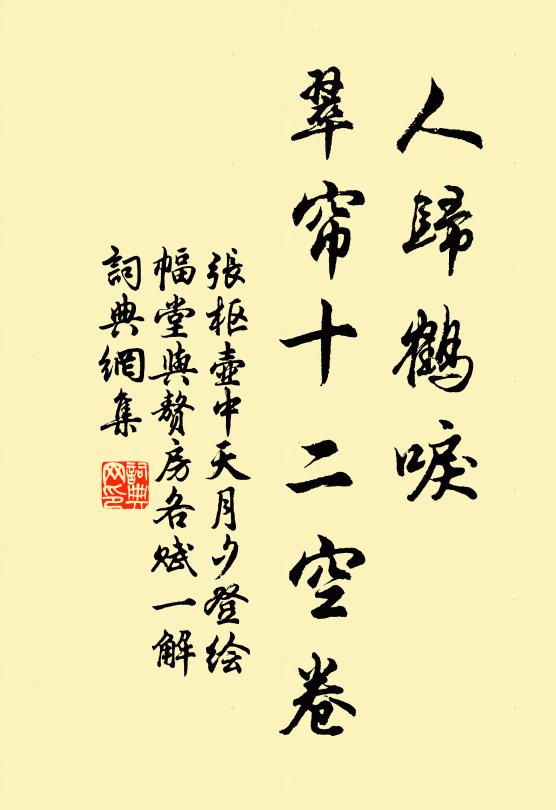 人歸鶴唳
翠帘十二空卷
張枢壺中天月夕登绘
幅堂與赘房各赋一解
詞典網集
詞典网印